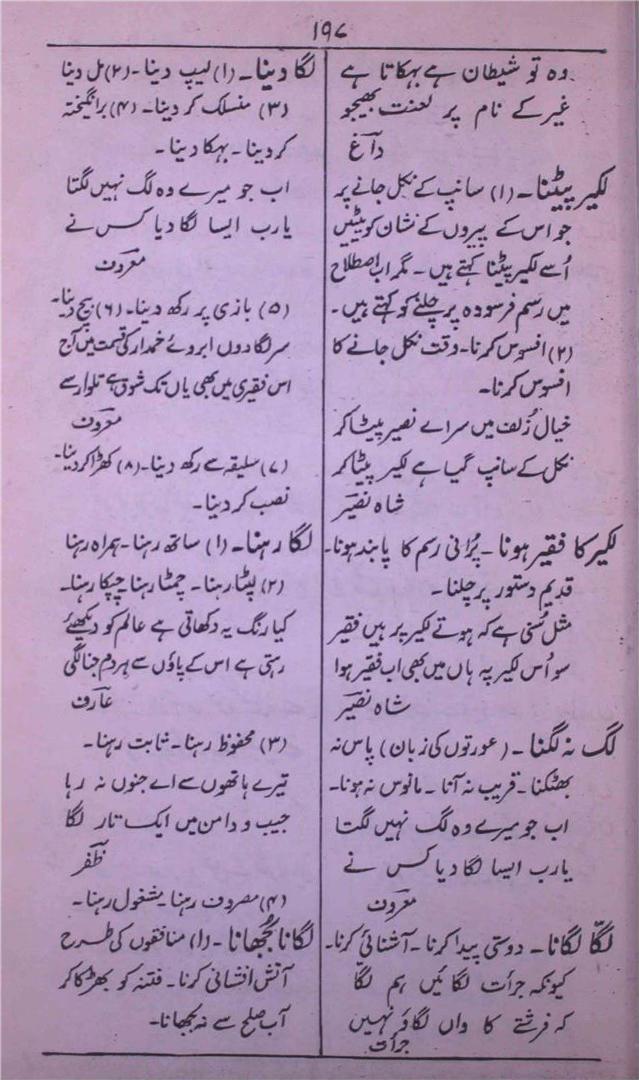 ۱۹۷
وہ تو شیطان ہے بہکاتا ہے
غیر کے نام پر لعنت بھیجو
داغؔ
لکیر پیٹنا۔ (۱) سانپ کے نکل جانے پر
جو اس کے پیروں کے نشان کو پیٹیں
اُسے لکیر پیٹنا کہتے ہیں۔ مگر اب اصطلاح
میں رسم فرسودہ پر چلنے کو کہتے ہیں۔
(۲) افسوس کرنا۔ وقت نکل جانے کا
افسوس کرنا۔
خیال زُلف میں سر اے نصیر پیٹا کر
نکل کے سانپ گیا ہے لکیر پیٹا کر
شاہ نصیرؔ
لکیر کا فقیر ہونا۔ پُرانی رسم کا پابند ہونا۔
قدیم دستور پر چلنا۔
مثل سُنی ہے کہ ہوتے لکیر پر ہیں فقیر
سو اُس لکیر پہ ہاں میں بھی اب فقیر ہوا
شاہ نصیرؔ
لگ نہ لگنا۔ (عورتوں کی زبان) پاس نہ
بھٹکنا۔ قریب نہ آنا۔ مانوس نہ ہونا۔
اب جو میرے وہ لگ نہیں لگتا
یارب ایسا لگا دیا کس نے
معروفؔ
لگّا لگانا۔ دوستی پیدا کرنا۔ آشنائی کرنا۔
کیونکہ جرأت لگائیں ہم لگّا
کہ فرشتے کا واں لگاؤ نہیں
جرأت
لگا دینا۔ (۱) لیپ دینا۔ (۲) مل دینا
(۳) منسلک کر دینا۔ (۴) برانگیختہ
کر دینا۔ بہکا دینا۔
اب جو میرے وہ لگ نہیں لگتا
یارب ایسا لگا دیا کس نے
معروفؔ
(۵) بازی پر رکھ دینا۔ (۶) بیچ دینا۔
سر لگا دوں ابروئے خمدار کی قسمت میں آج
اس فقیری میں بھی یاں تک شوق ہے تلوار سے
معروفؔ
(۷) سلیقہ سے رکھ دینا۔ (۸) کھڑا کر دینا۔
نصب کر دینا۔
لگا رہنا۔ (۱) ساتھ رہنا۔ ہمراہ رہنا
(۲) لپٹا رہنا۔ چمٹا رہنا۔ چپکا رہنا۔
کیا رنگ یہ دکھاتی ہے عالم کو دیکھئے
رہتی ہے اس کے پاؤں سے ہر دم حنا لگی
عارفؔ
(۳) محفوظ رہنا۔ ثابت رہنا۔
تیرے ہاتھوں سے اے جنوں نہ رہا
جیب و دامن میں ایک تار لگا
ظفرؔ
(۴) مصروف رہنا۔ مشغول رہنا۔
لگانا بُجھانا۔ (۱) منافقوں کی طرح
آتش افشانی کرنا۔ فتنہ کو بھڑکا کر
آب صلح سے نہ بجھانا۔